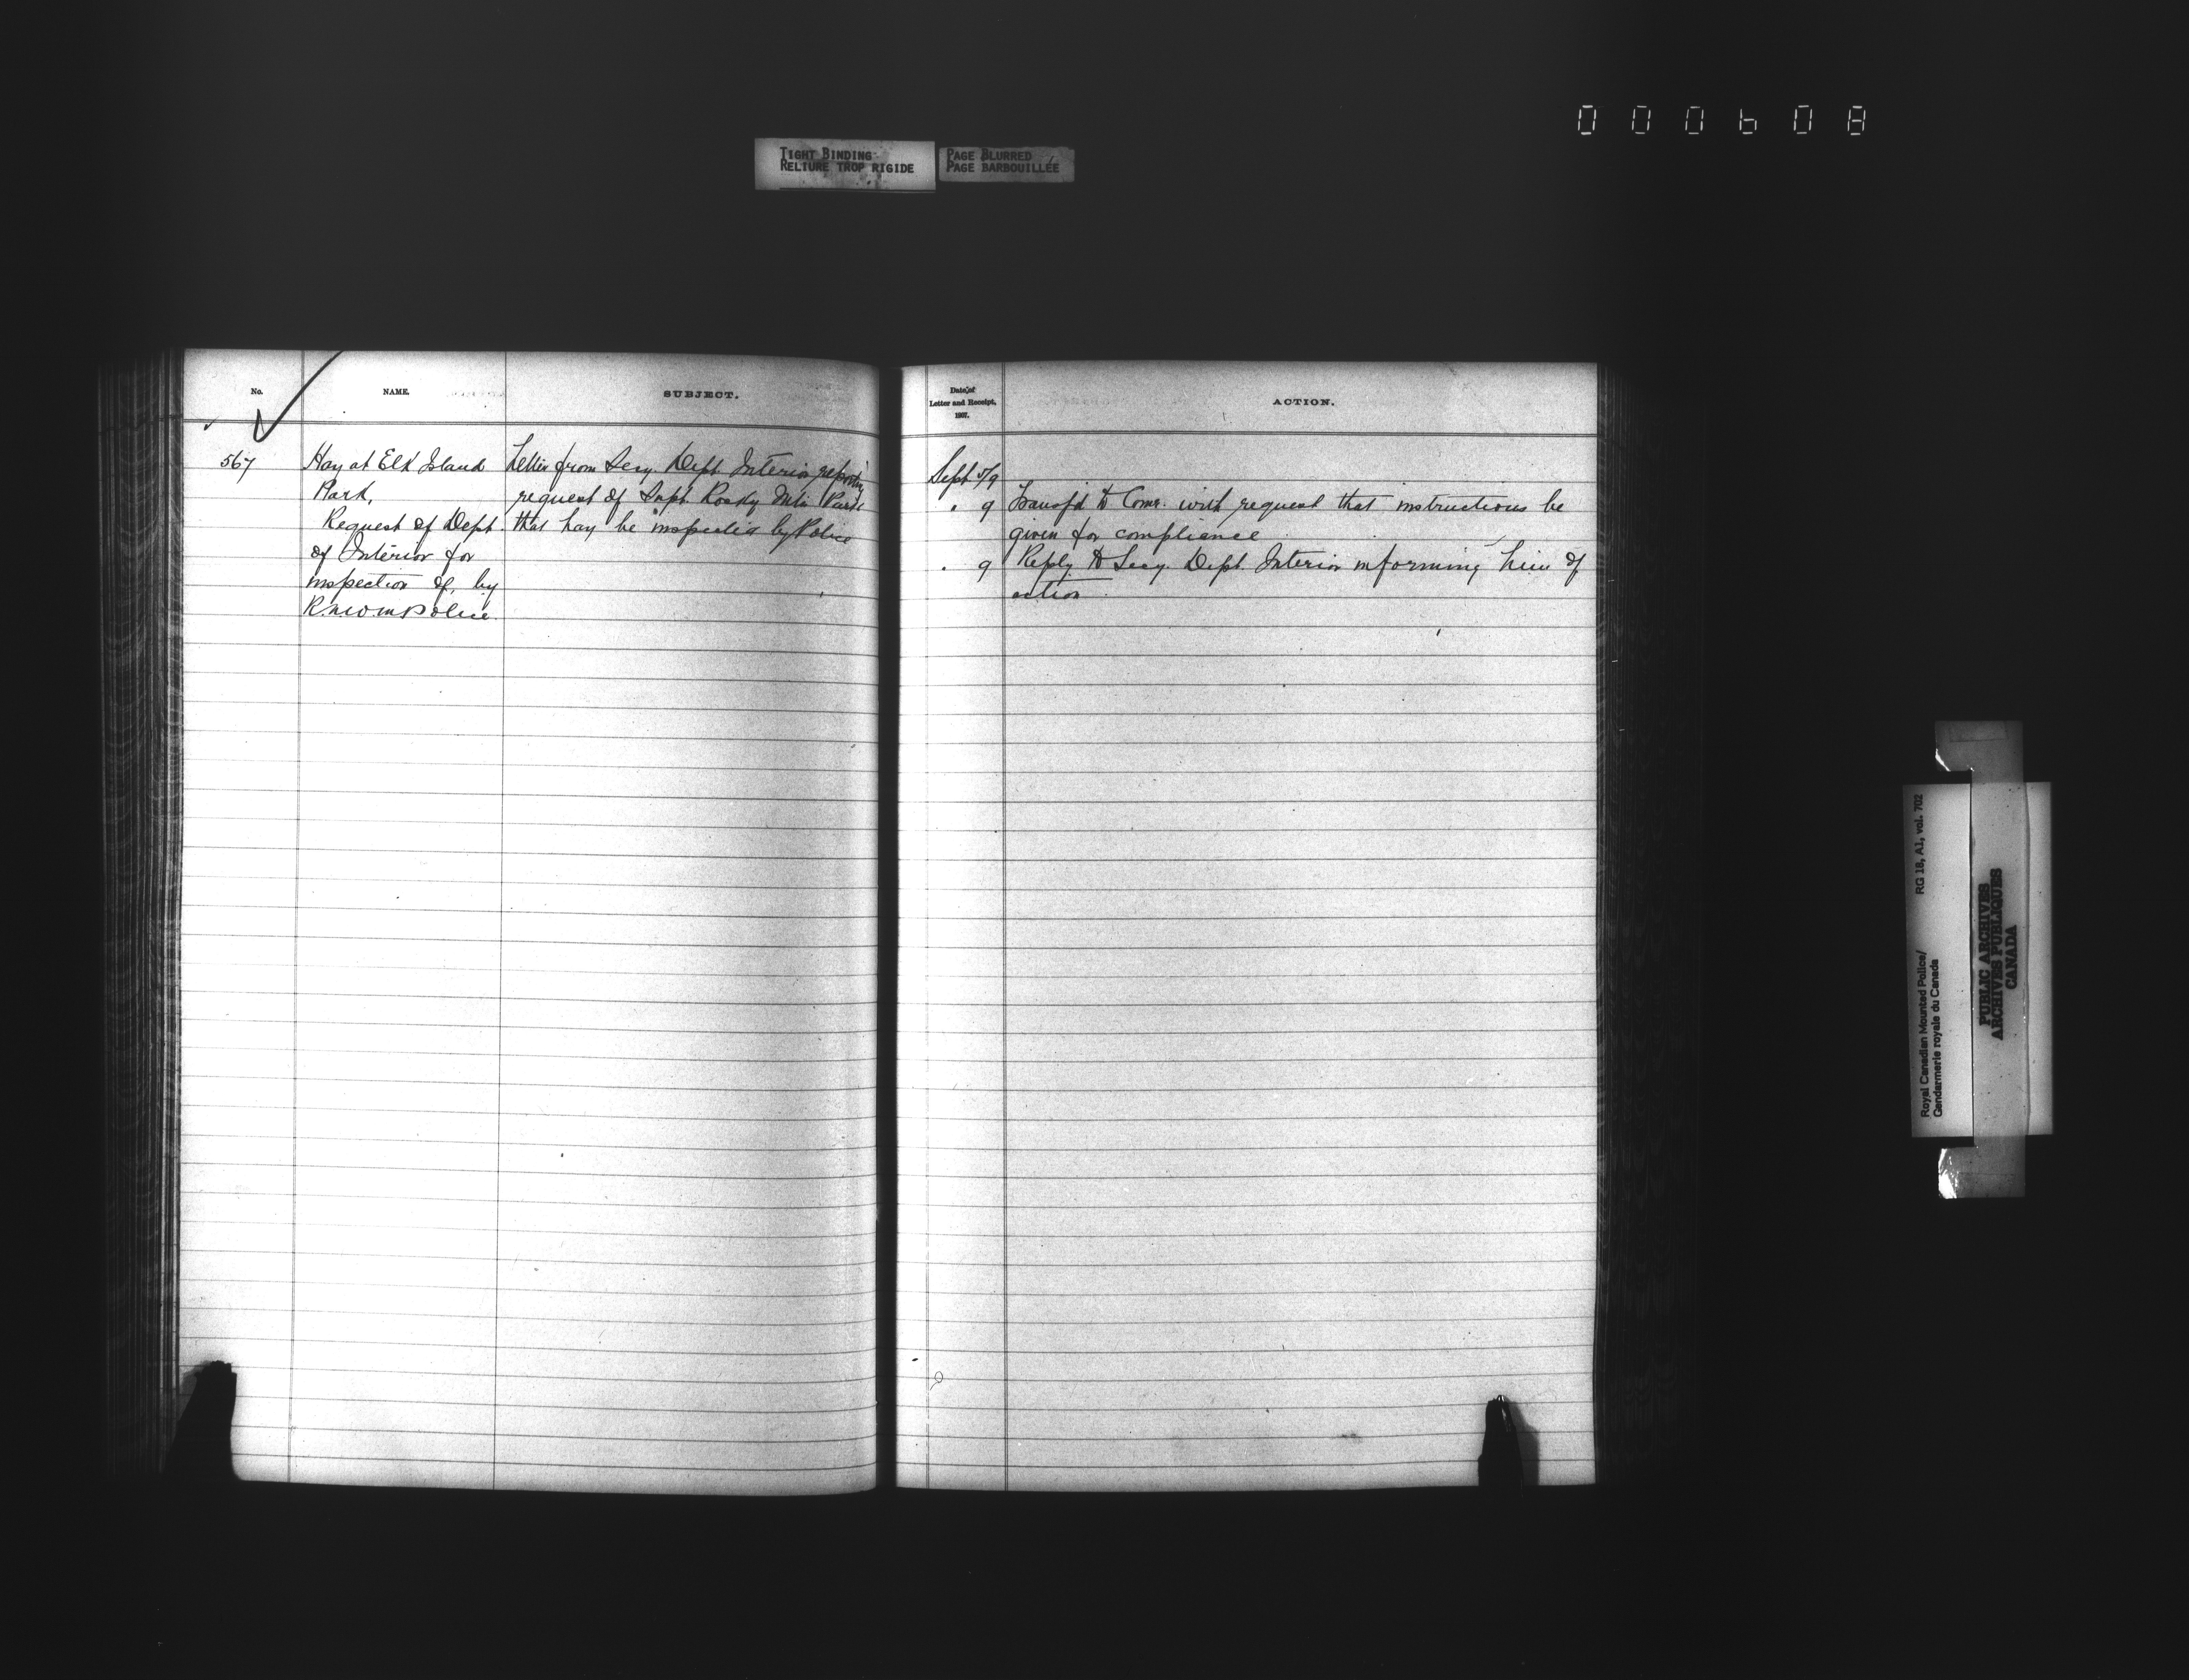 000608
TIGHT BINDING
RELIURE TROP RIGIDE
PAGE BLURRED
PAGE BARBOUILLÉE
No.
NAME.
SUBJECT.
567
Hay at Elk Island
Park.
Request of Dept
of Interior for
inspection of, by
R.N.W.M Police.
Letter from Secy. Dept. Interior reporting
request of Supt. Rocky Mtn Park
that hay be inspected by Police
Date of
Letter and Receipt,
1907.
ACTION.
Sept 5/9
" 9 Transf'd to Comr. with request that instructions be
given for compliance
" 9 Reply to Secy. Dept. Interior informing him of
action
Royal Canadian Mounted Police/ RG 18, A1, vol. 702
Gendarmerie royale du Canada
PUBLIC ARCHIVES
ARCHIVES PUBLIQUES
CANADA